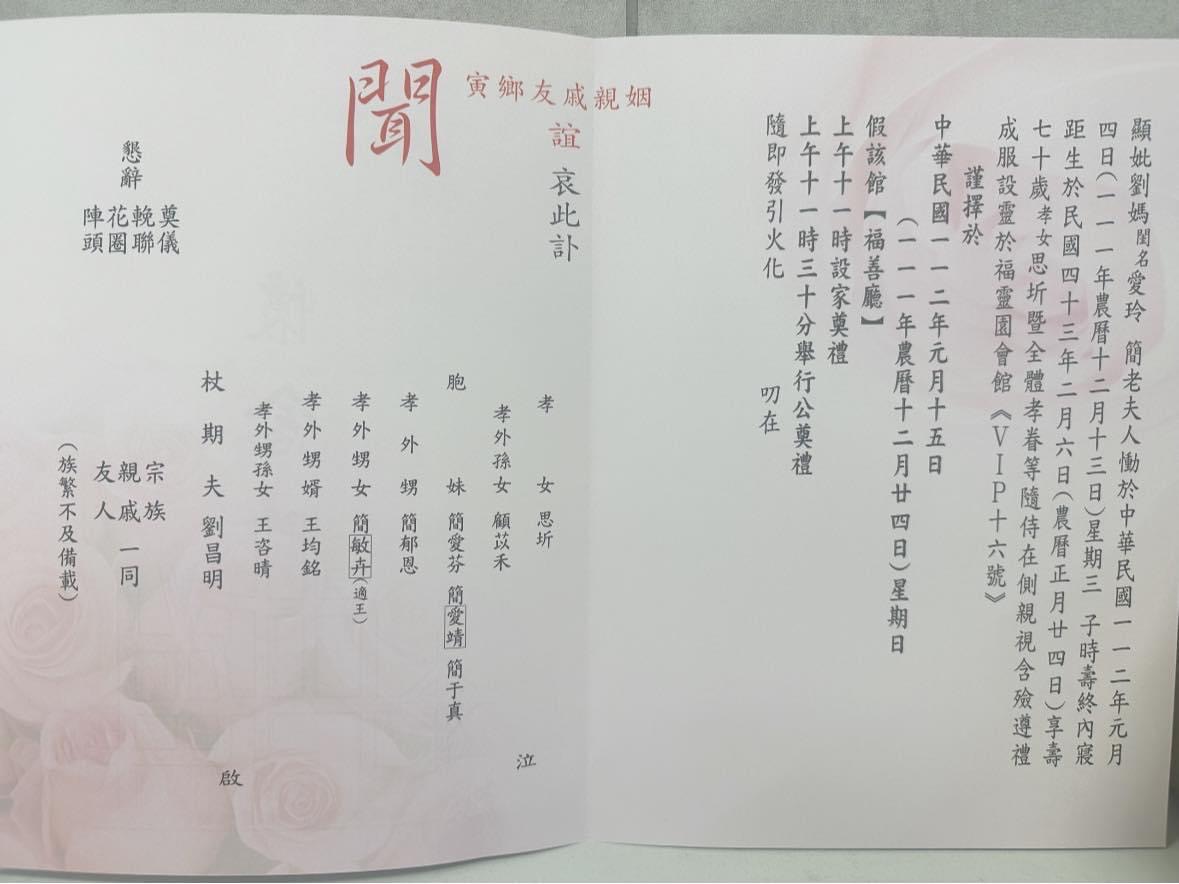 顯妣劉媽閨名愛玲 簡老夫人慟於中華民國一一二年元月
四日(一一一年農曆十二月十三日)星期三 子時壽終內寢
距生於民國四十三年二月六日(農曆正月廿四日)享壽
七十歲孝女思圻暨全體孝眷等隨侍在側親視含殮遵禮
成服設靈於福靈園會館《VIP十六號》
謹擇於
中華民國一一二年元月十五日
(一一一年農曆十二月廿四日)星期日
假該館【福善廳】
上午十一時設家奠禮
上午十一時三十分舉行公奠禮
隨即發引火化
叨在
姻親戚友鄉寅
誼 哀此訃
聞
孝女 思圻
孝外孫女 顧苡禾
胞妹 簡愛芬 簡愛靖 簡于真
孝外甥 簡郁恩
孝外甥女 簡敏卉(適王)
孝外甥婿 王均銘
孝外甥孫女 王咨晴
杖期夫 劉昌明
泣
啟
宗族
親戚 一同
友人
(族繁不及備載)
懇辭
奠儀
輓聯
花圈
陣頭